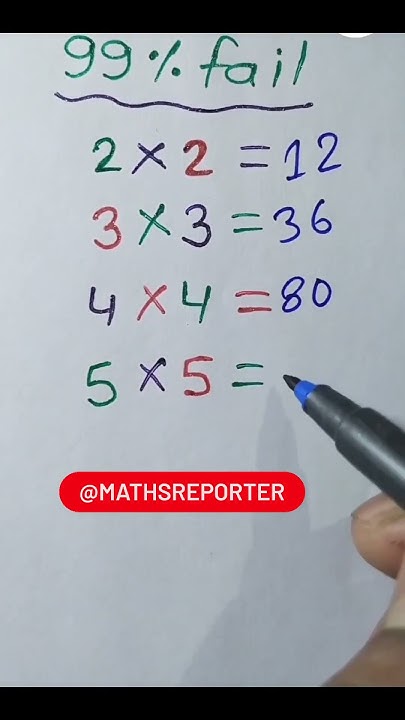 99% fail
2 × 2 = 12
3 × 3 = 36
4 × 4 = 80
5 × 5 =
@MATHSREPORTER